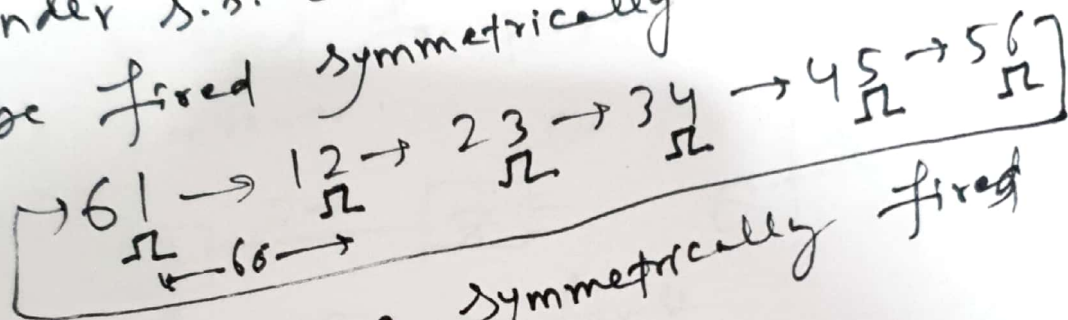 nder s.s.
ge fired symmetrically
→61 → 12 → 23 → 34 → 45 → 56
←60→
symmetrically fired